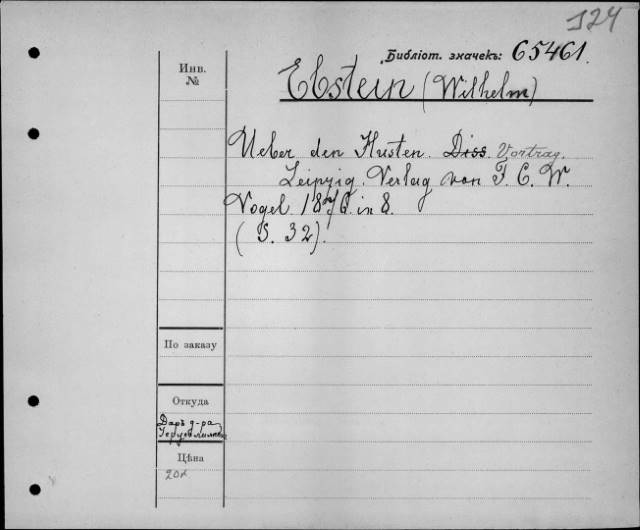 124
Библіот. значекъ: 65461.
Инв.
№
Ebstein (Wilhelm)
Ueber den Husten. Diss. Vortrag.
Leipzig. Verlag von F. C. W.
Vogel. 1876. in 8.
(S. 32).
По заказу
Откуда
Даръ д-ра
Цѣна
20к